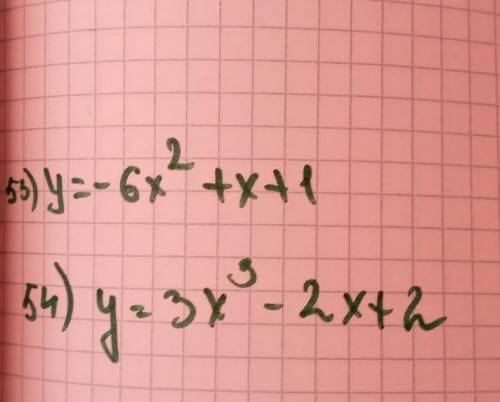 53) y=-6x² +x+1
54) y=3x³-2x+2